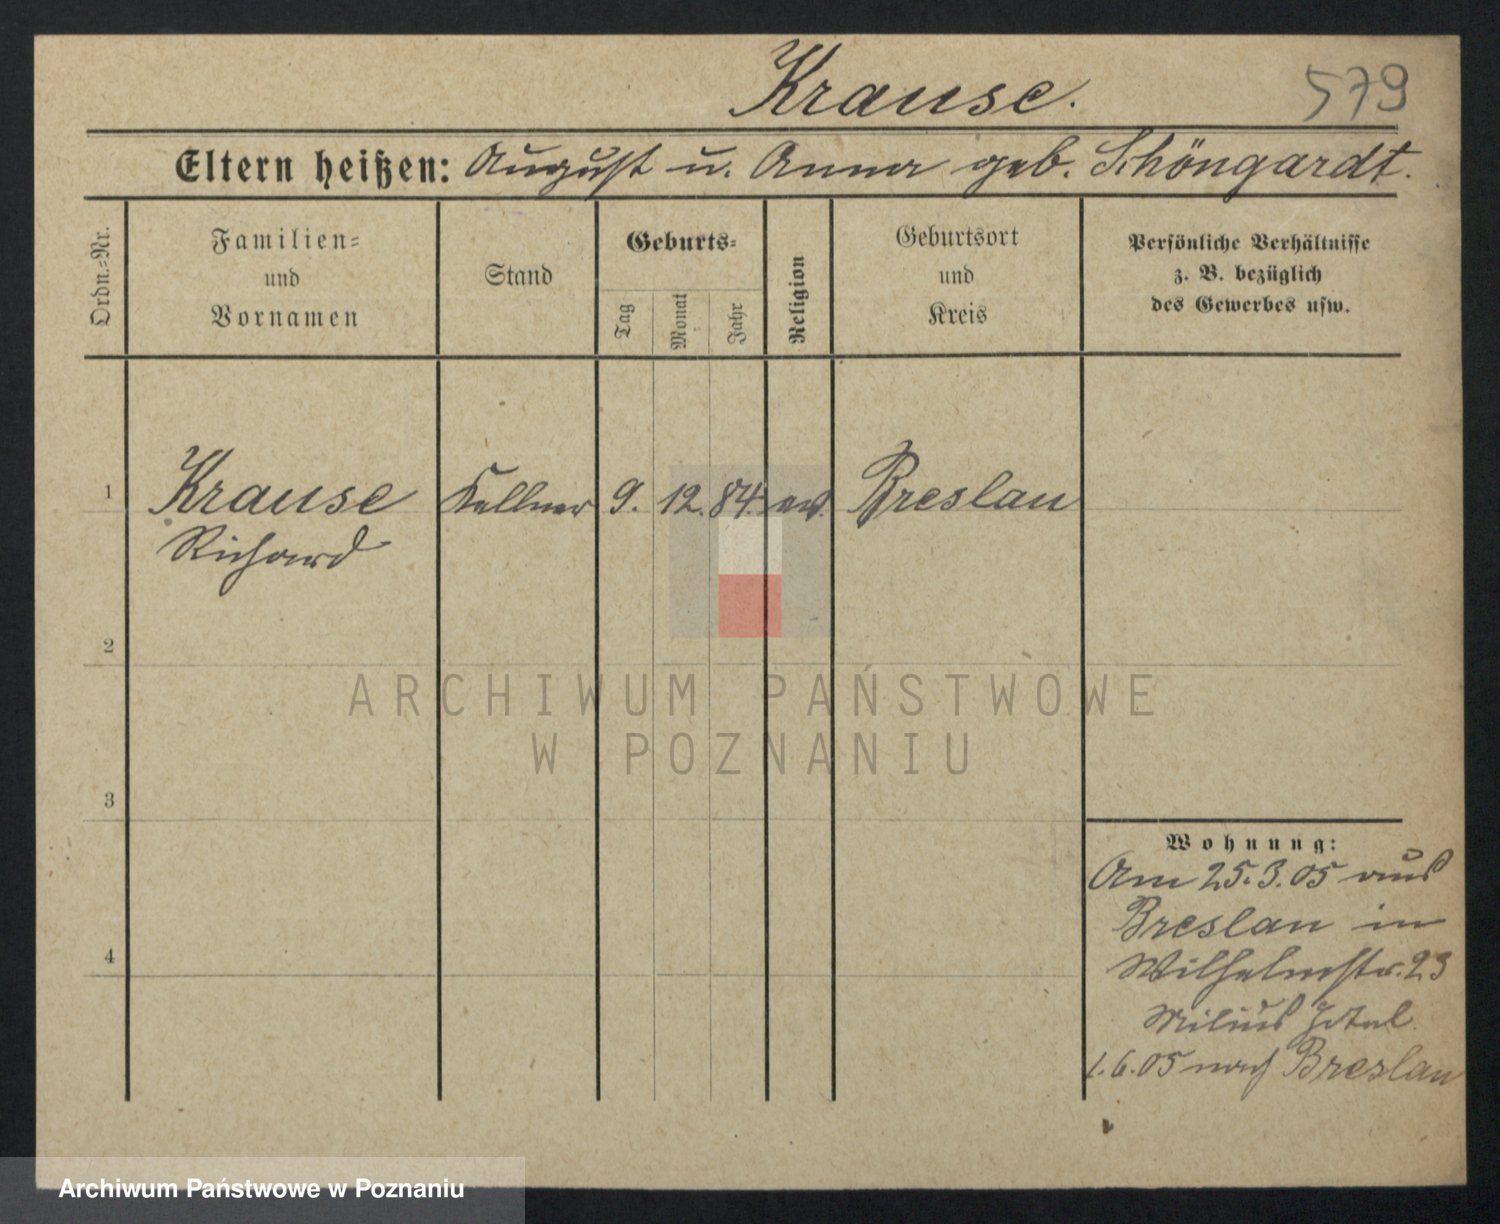 Krause.
579
Eltern heißen: August u. Anna geb. Schöngardt.
Ordn.-Nr.
Familien-
und
Vornamen
Stand
Geburts-
Tag
Monat
Jahr
Religion
Geburtsort
und
Kreis
Persönliche Verhältnisse
z. B. bezüglich
des Gewerbes usw.
1 Krause Kellner 9. 12. 84. ev. Breslau
Richard
2
ARCHIWUM PAŃSTWOWE
W POZNANIU
3
4
Wohnung:
Am 25.3.05 aus
Breslau in
Wilhelmstr. 23
Milius Hotel
1.6.05 nach Breslau
Archiwum Państwowe w Poznaniu